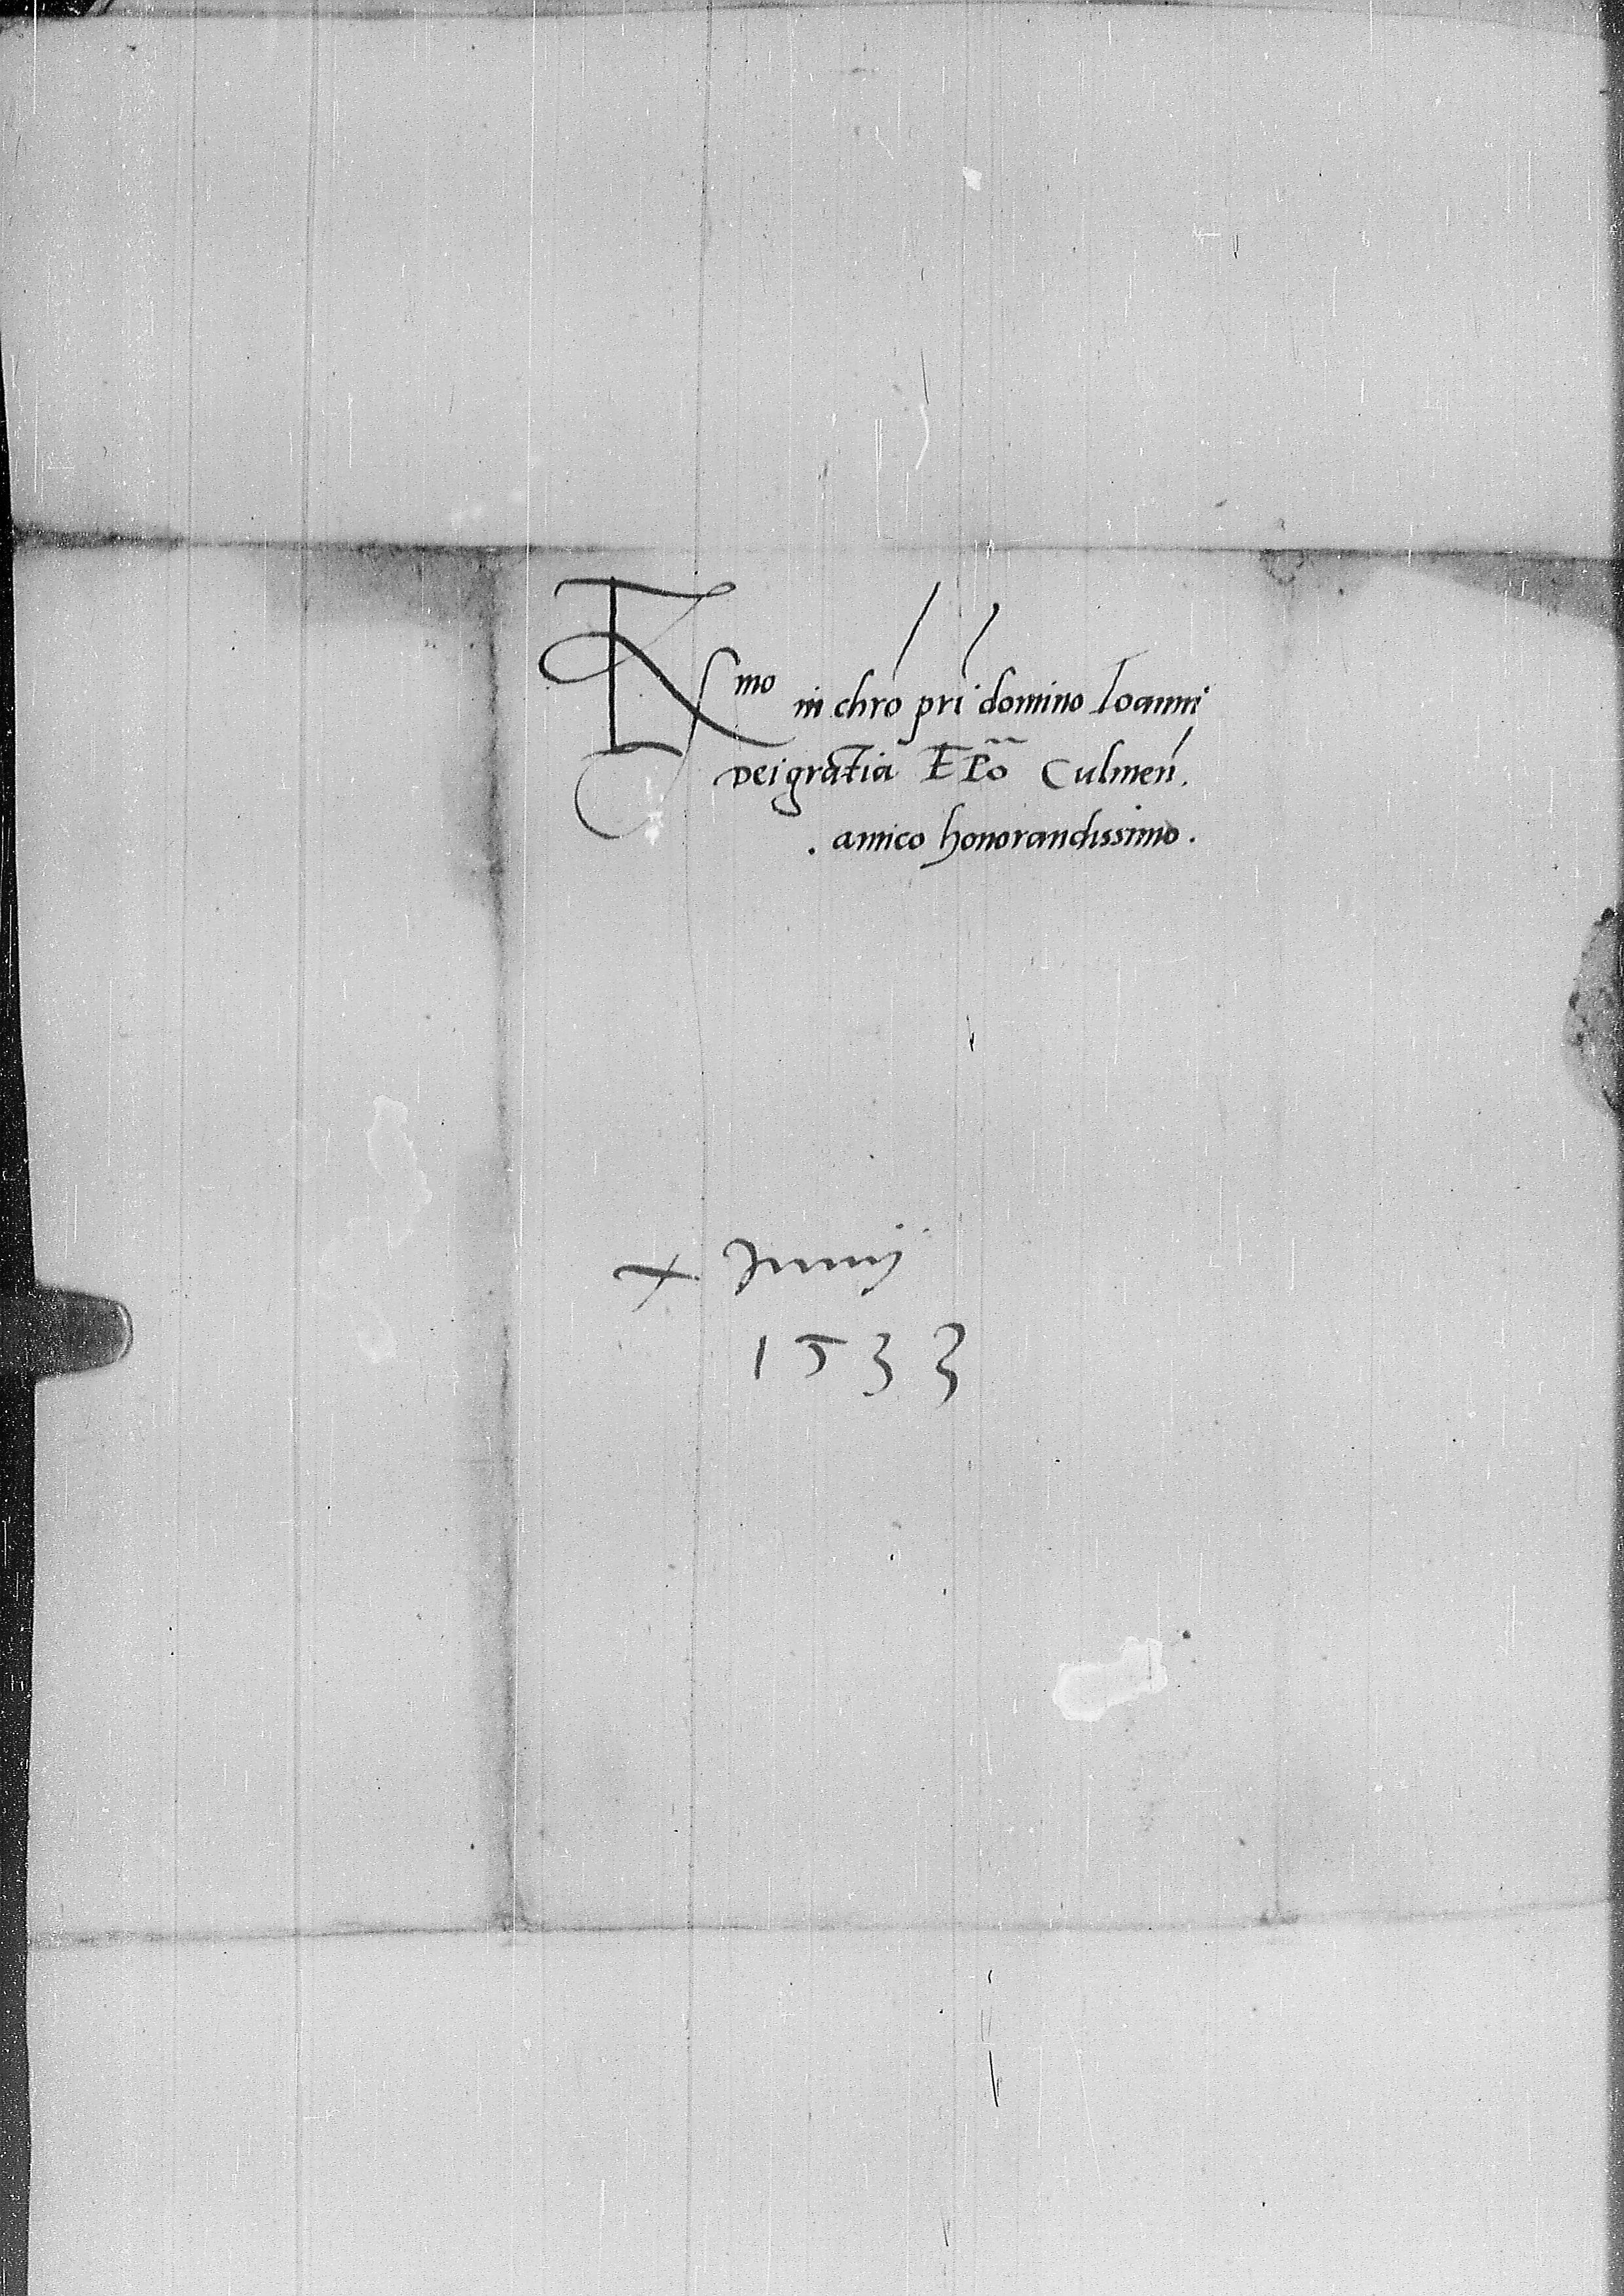 Rsmo in chro pri domino Ioanni
Dei gratia EPo Culmen.
. amico honorandissimo .
x Junij
1533